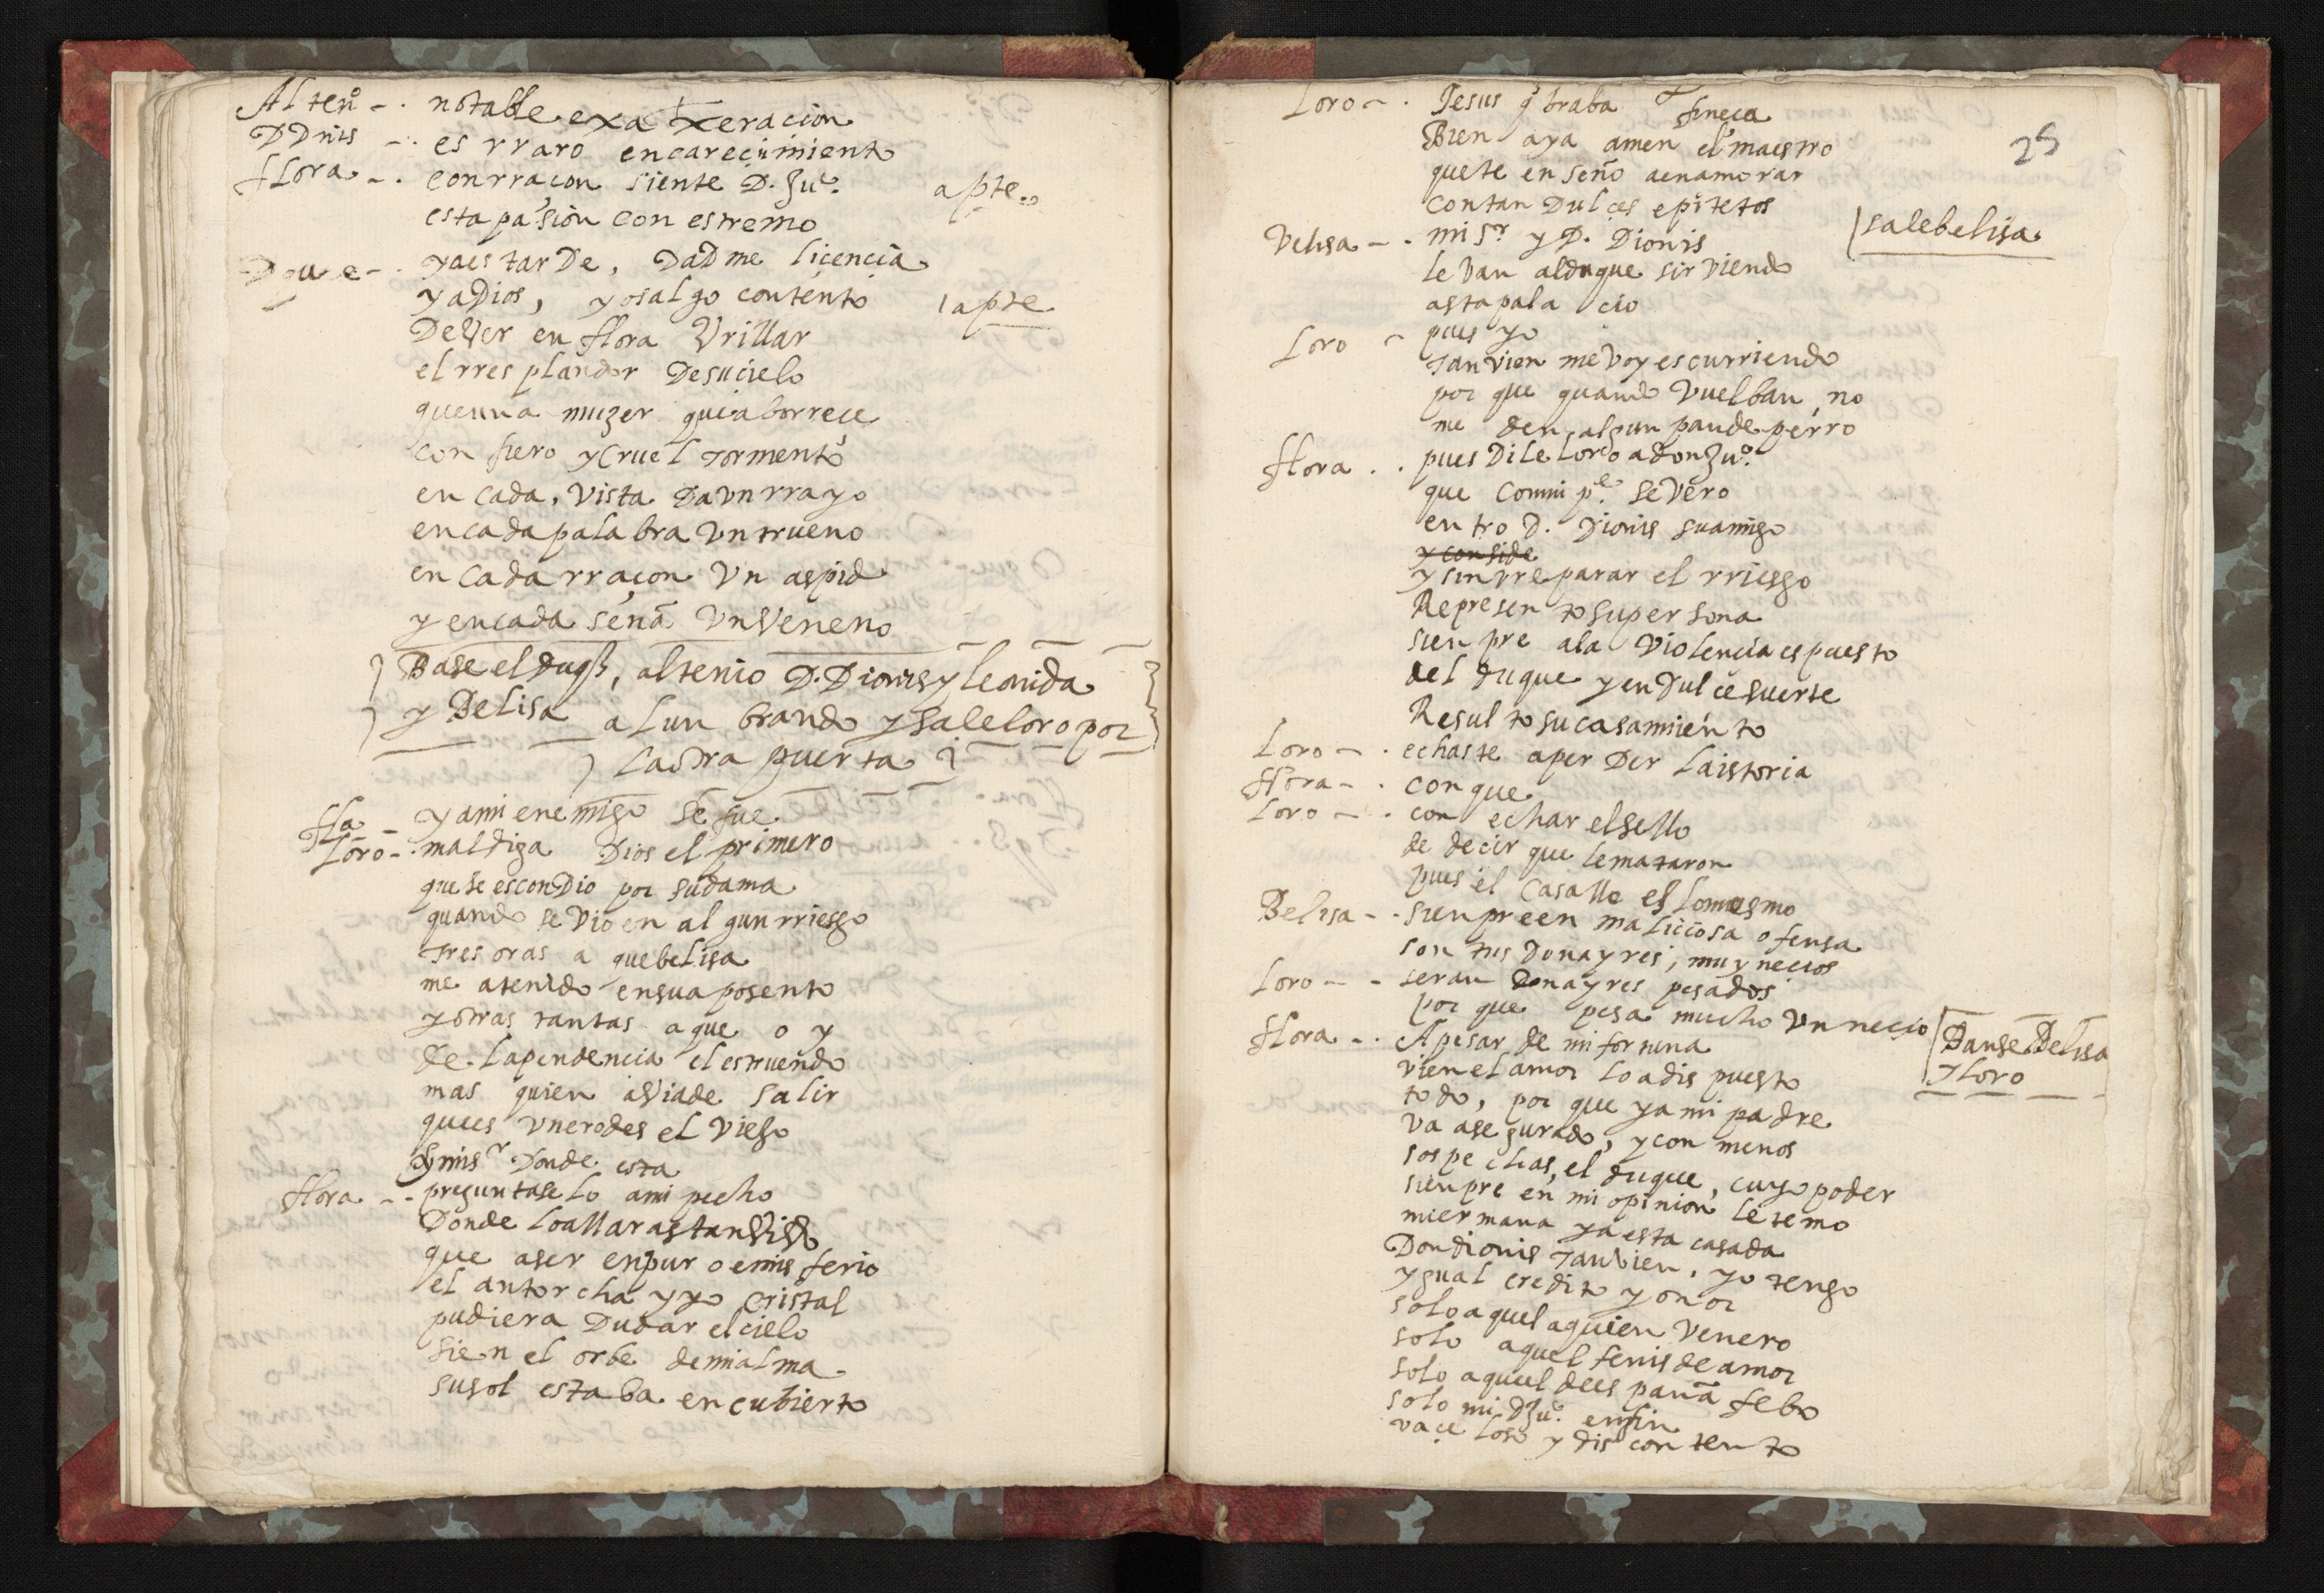 Alten.º -. notable exaxeracion
D Dnis -. es rraro encarecimiento
flora -. con rraçon siente D. Juº. apte.
esta pasion con estremo
Duque -. ya es tarde, dadme licencia
y a Dios, yo salgo contento apte
de ver en flora vrillar
el rresplandor de su cielo
que una muger que aborrece
con fiero y cruel tormento
en cada, vista da vn rrayo
en cada palabra vn trueno
en cada rraçon vn aspid
y en cada seña vn veneno
Base el duqe, altenio D. Dionis y leonida
y Belisa alunbrando y sale loro por
la otra puerta
fla - y a mi enemigo se fue
Loro -. maldiga Dios el primero
que se escondio por su dama
quando se vio en algun rriesgo
tres oras a que belisa
me a tenido en su aposento
y otras tantas a que oy
de la pendencia el estruendo
mas quien avia de salir
que es vn erodes el viejo
y mi sr donde esta
flora -. preguntaselo a mi pecho
Donde lo allaras tan vivo
que a ser en puro emisferio
el antorcha y yo cristal
pudiera dudar el cielo
si en el orbe de mi alma
su sol estaba encubierto
25
Loro -. Jesus q braba fineça
Bien aya amen el maestro
que te enseño a enamorar
con tan dulçes epitetos
Velisa -. mi sr y D. Dionis sale belisa
le van al duque sirviendo
asta palacio
Loro - pues yo
tanvien me voy escurriendo
por que quando vuelban, no
me den algun pan de perro
flora .. pues dile loro a don Juº.
que con mi pe. severo
entro D. Dionis su amigo
y con side
y sin rreparar el rriesgo
Represento su persona
sienpre a la violencia espuesto
del duque y en dulce suerte
Resulto su casamiento
Loro -. echaste a perder la istoria
flora -. con que
Loro -. con echar el sello
de decir que le mataron
pues el casallo es lo mesmo
Belisa -. sienpre en maliciosa ofensa
son tus donayres, muy necios
Loro -- seran donayres pesados
por que pesa mucho vn necio Banse Belisa
y loro
flora -. A pesar de mi fortuna
vien el amor lo a dispuesto
todo, por que ya mi padre
va asegurado, y con menos
sospechas, el duque, cuyo poder
sienpre en mi opinion le temo
mi ermana ya esta casada
Don dionis tanvien, yo tengo
ygual credito y onor
solo aquel a quien venero
solo aquel fenis de amor
solo aquel de españa febo
solo mi D Juº. en fin
va çeloso y discontento